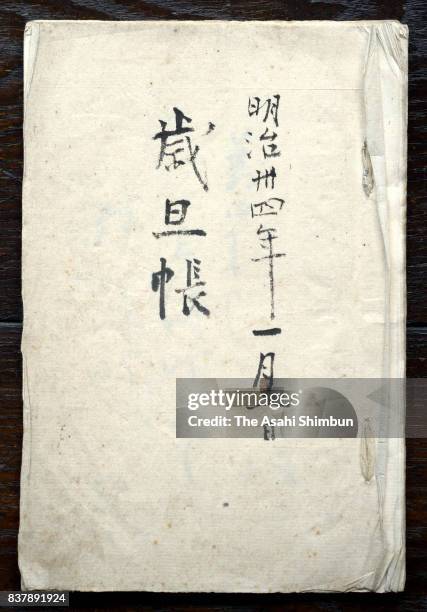 明治卅四年一月
歳旦帳
gettyimages
The Asahi Shimbun
837891924